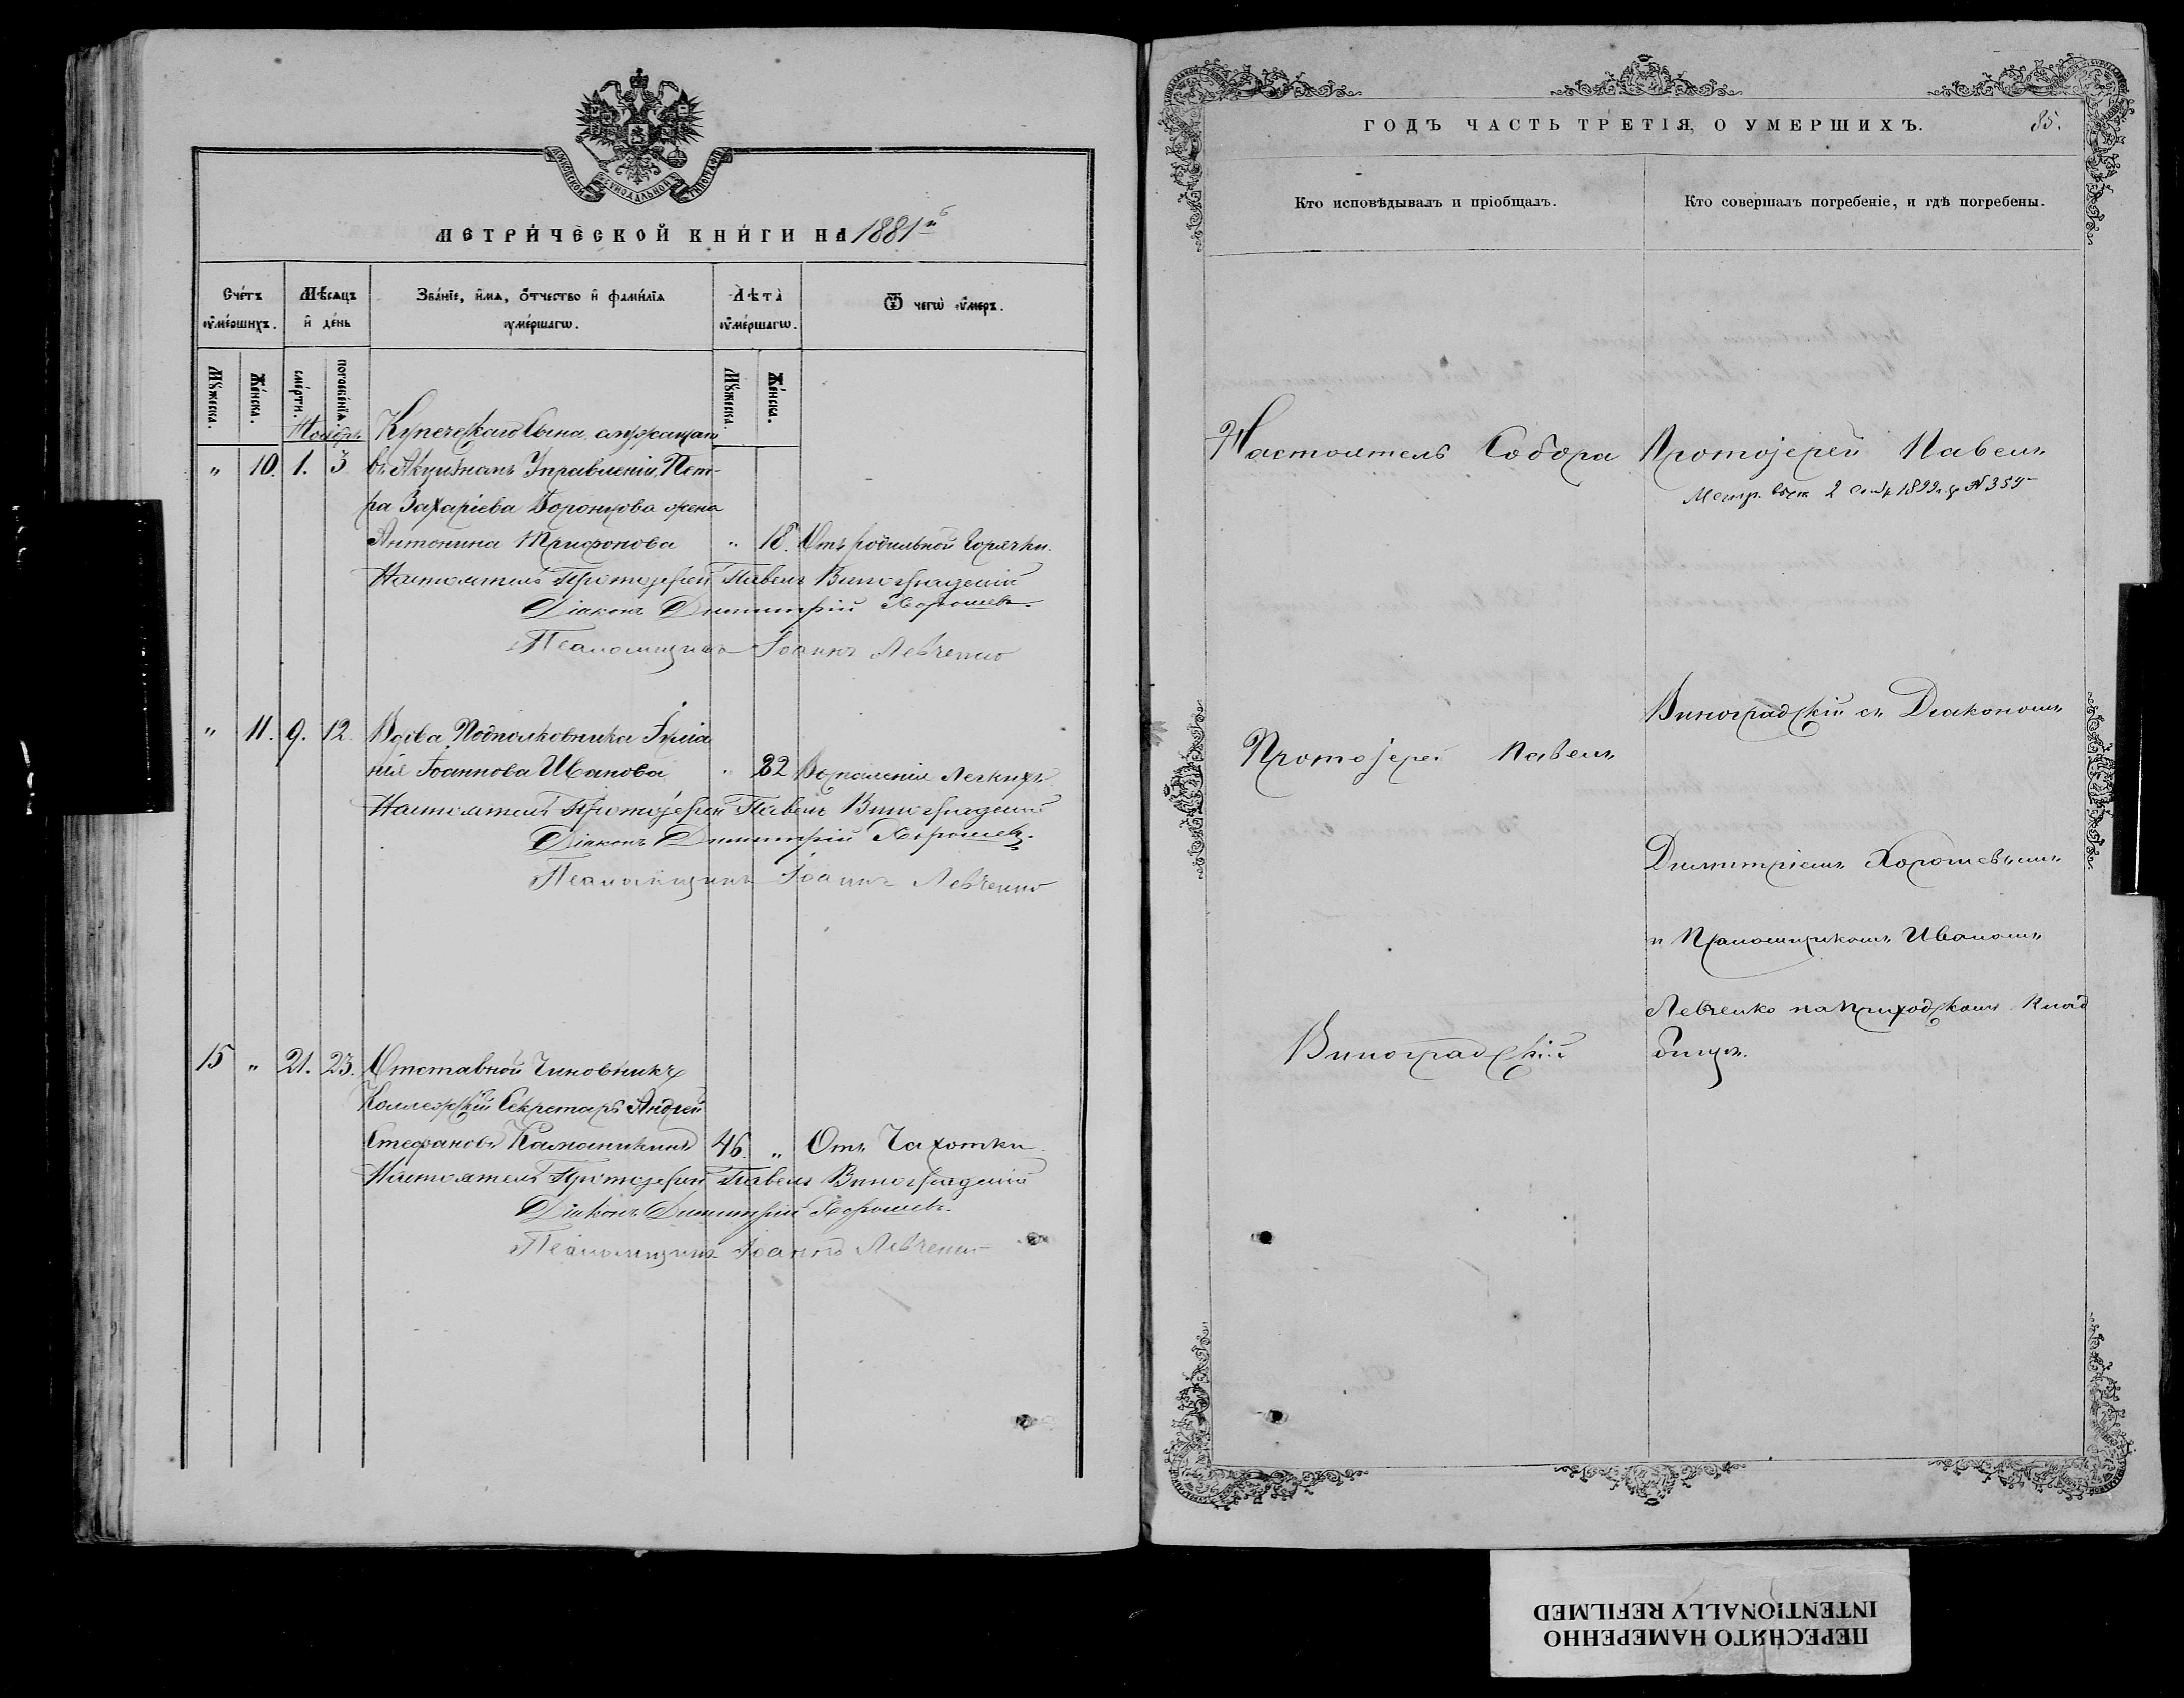 МОСКОВСКОЙ СѴНОДАЛЬНОЙ ТИПОГРАФІИ
МЕТРИ́ЧЕСКОЙ КНИ́ГИ НА 1881й
Сче́тъ ᲂу҆ме́ршихъ.
Мѣ́сяцъ и҆ де́нь
Зва́нїе, и҆́мѧ, ѻ҆́тчество и҆ фами́лїѧ ᲂу҆ме́ршагѡ.
Лѣ́та ᲂу҆ме́ршагѡ.
Ѿ чегѡ̀ ᲂу҆́меръ.
Мꙋ́жеска.
Же́нска.
сме́рти.
погребе́нїѧ.
Мꙋ́жеска.
Же́нска.
Ноябрь
Купеческаго Сына, служащаго
" 10. 1. 3 въ Управленіи, Пет-
ра Захаріева жена
Антонина Трифонова " 18. Отъ родильной горячки.
Настоятель Протоіерей Павелъ Виноградскій
Діаконъ Димитрій Хорошевъ.
Псаломщикъ Іоаннъ Левченко
" 11. 9. 12. Вдова Подполковника Іуліа
нія Іоаннова Иванова " 82 Воспаленія Легкихъ
Настоятель Протоіерей Павелъ Виноградскій
Діаконъ Димитрій Хорошевъ.
Псаломщикъ Іоаннъ Левченко
15 " 21. 23. Отставной Чиновникъ
Коллежскій Секретарь Андрей
Стефановъ 46. " Отъ Чахотки.
Настоятель Протоіерей Павелъ Виноградскій
Діаконъ Димитрій Хорошевъ.
Псаломщикъ Іоаннъ Левченко
ГОДЪ ЧАСТЬ ТРЕТІЯ, О УМЕРШИХЪ. 85.
Кто исповѣдывалъ и пріобщалъ.
Кто совершалъ погребеніе, и гдѣ погребены.
Настоятель Собора
Протоіерей Павелъ
Виноградскій
Протоіерей Павелъ
Виноградскій съ Діакономъ
Димитріемъ Хорошевымъ
и Псаломщикомъ Иваномъ
Левченко на Приходскомъ Клад
бищѣ.
ПЕРЕСНЯТО НАМЕРЕННО
INTENTIONALLY REFILMED